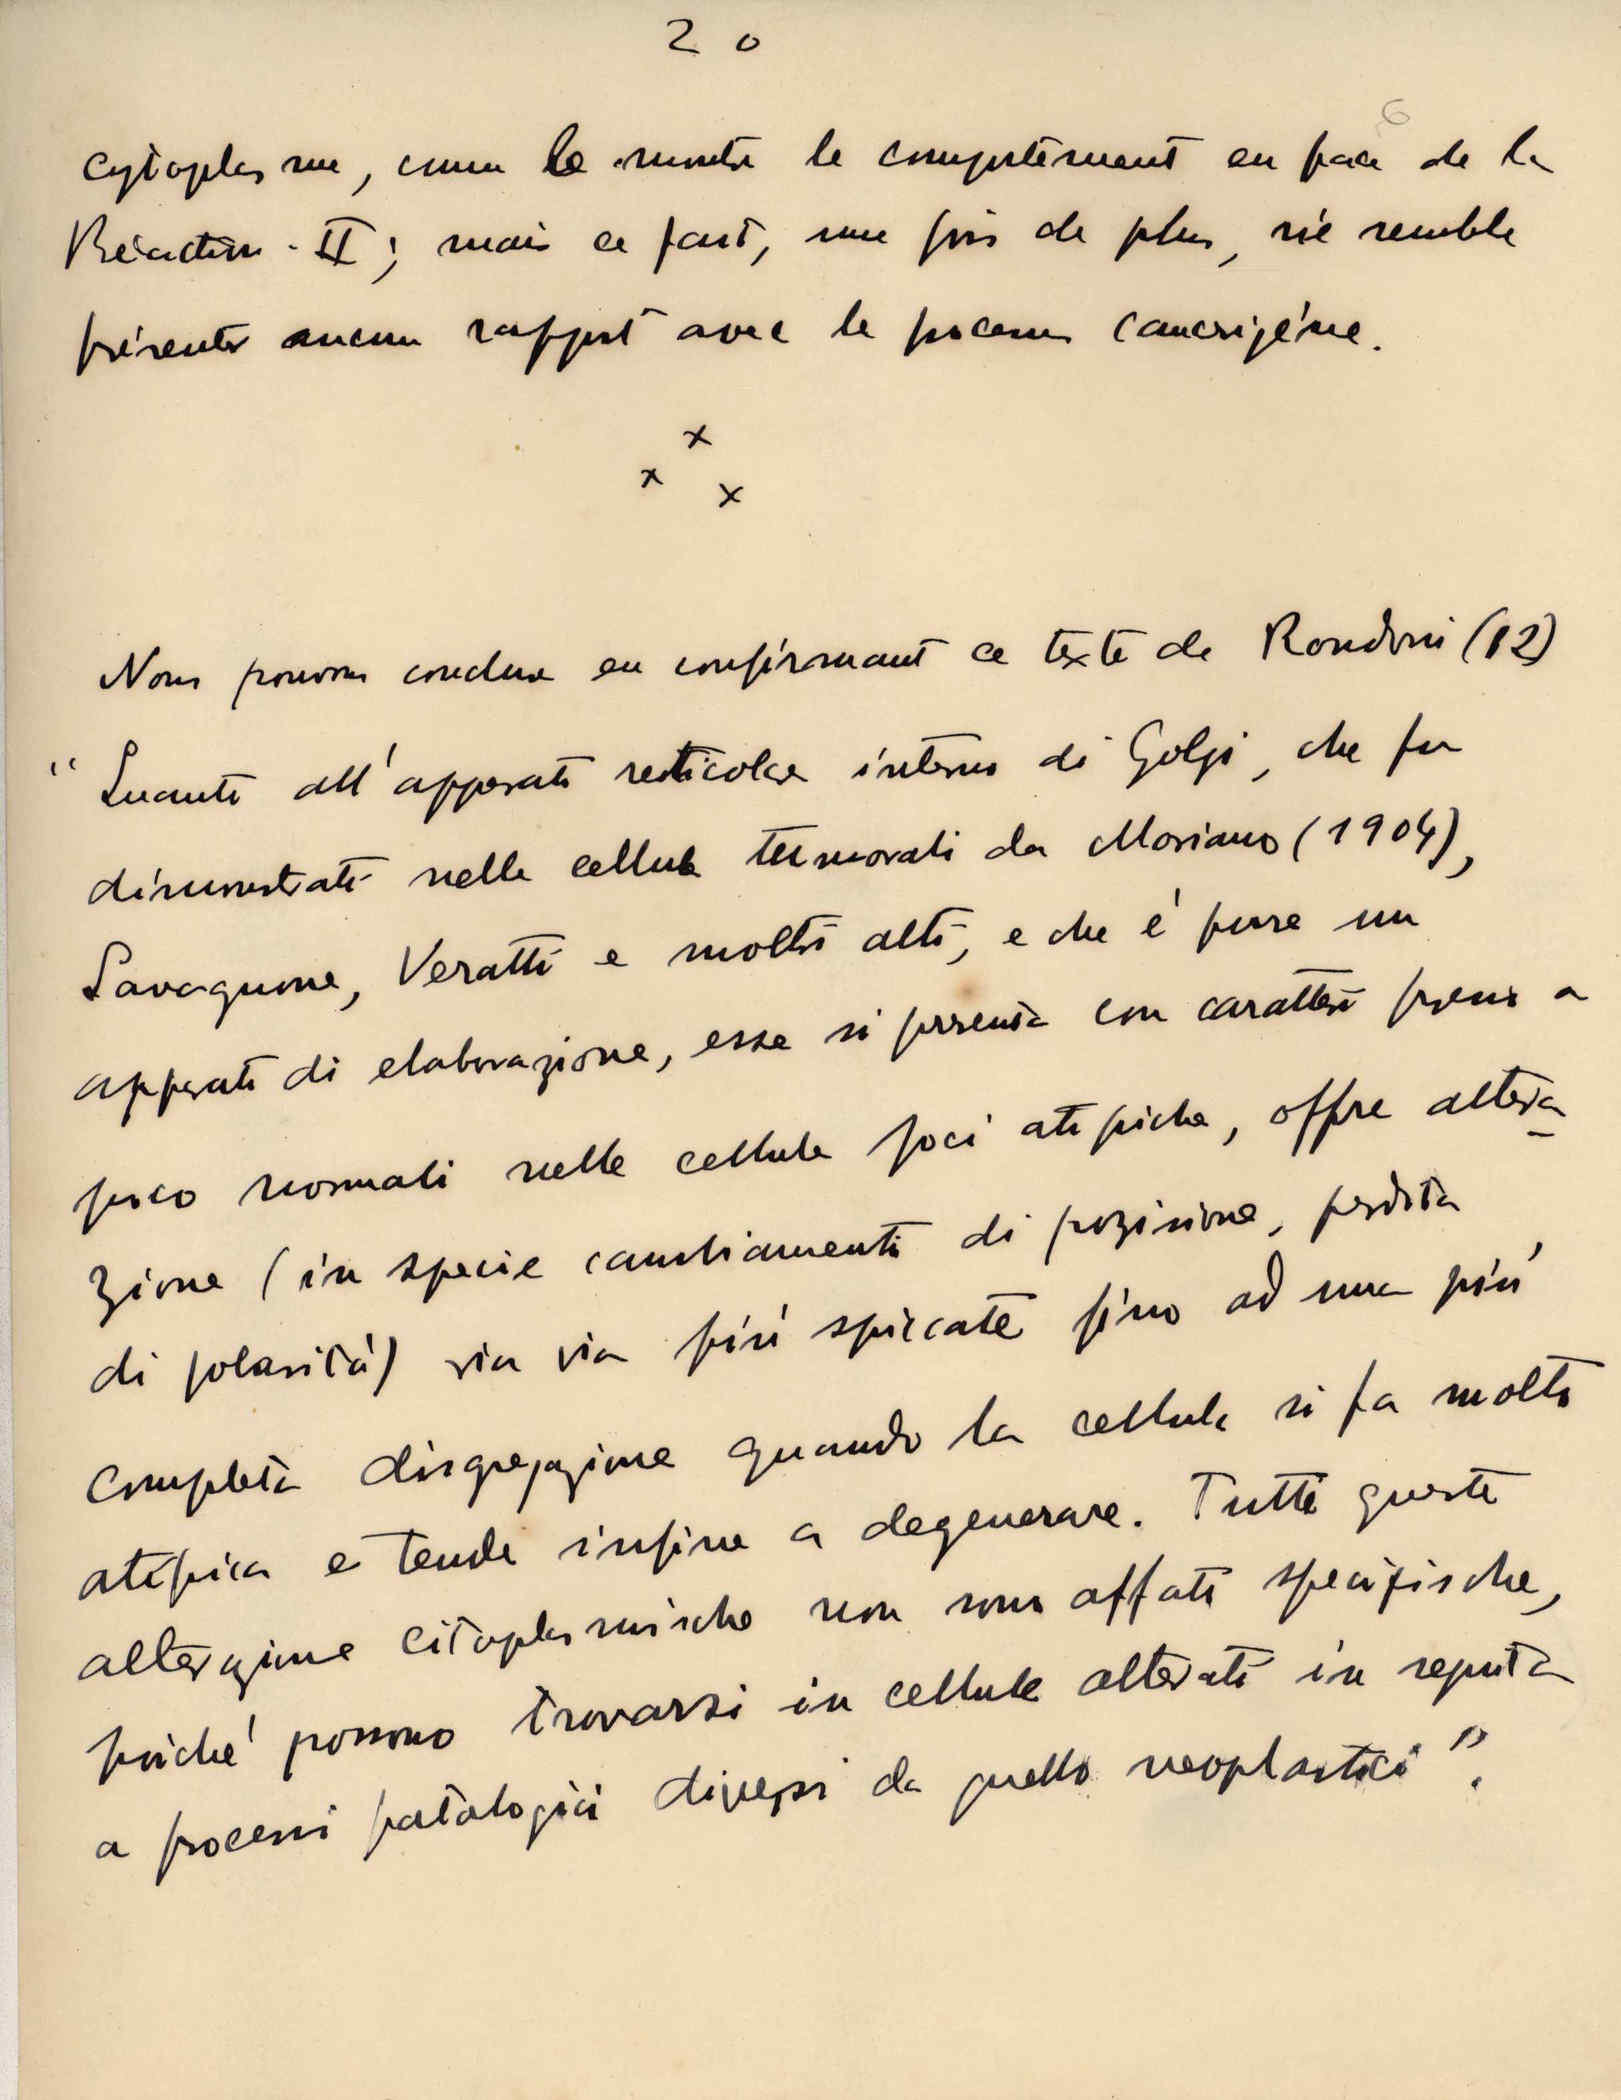 20
6
cytoplasme, comme le montre le comportement en face de la
Réaction - II ; mais ce fait, une fois de plus, ne semble
présenter aucun rapport avec le processus cancerigéne.
x
x x
Nous pouvons conclure en confirmant ce texte de Rondoni (12)
" Quanto all'apparato reticolare interno di Golgi, che fu
dimonstrato nelle cellule tumorali da Moriano (1904),
Savagnone, Veratti e moltri altri, e che é pure un
apparato di elaborazione, esse si presenta con caratteri presso a
poco normali nelle cellule poci atipiche, offre altera
zione (in specie cambiamenti di pozisione, perdita
di polaritá) via via piú spiccate fino ad una piú
completa disgregazione quando la cellula si fa molto
atipica e tende infine a degenerare. Tutte queste
alterazione citoplasmische non sono affato specifische,
poiché possono trovarsi in cellule alterati in seguita
a processi patalogici diversi da quello neoplastici".